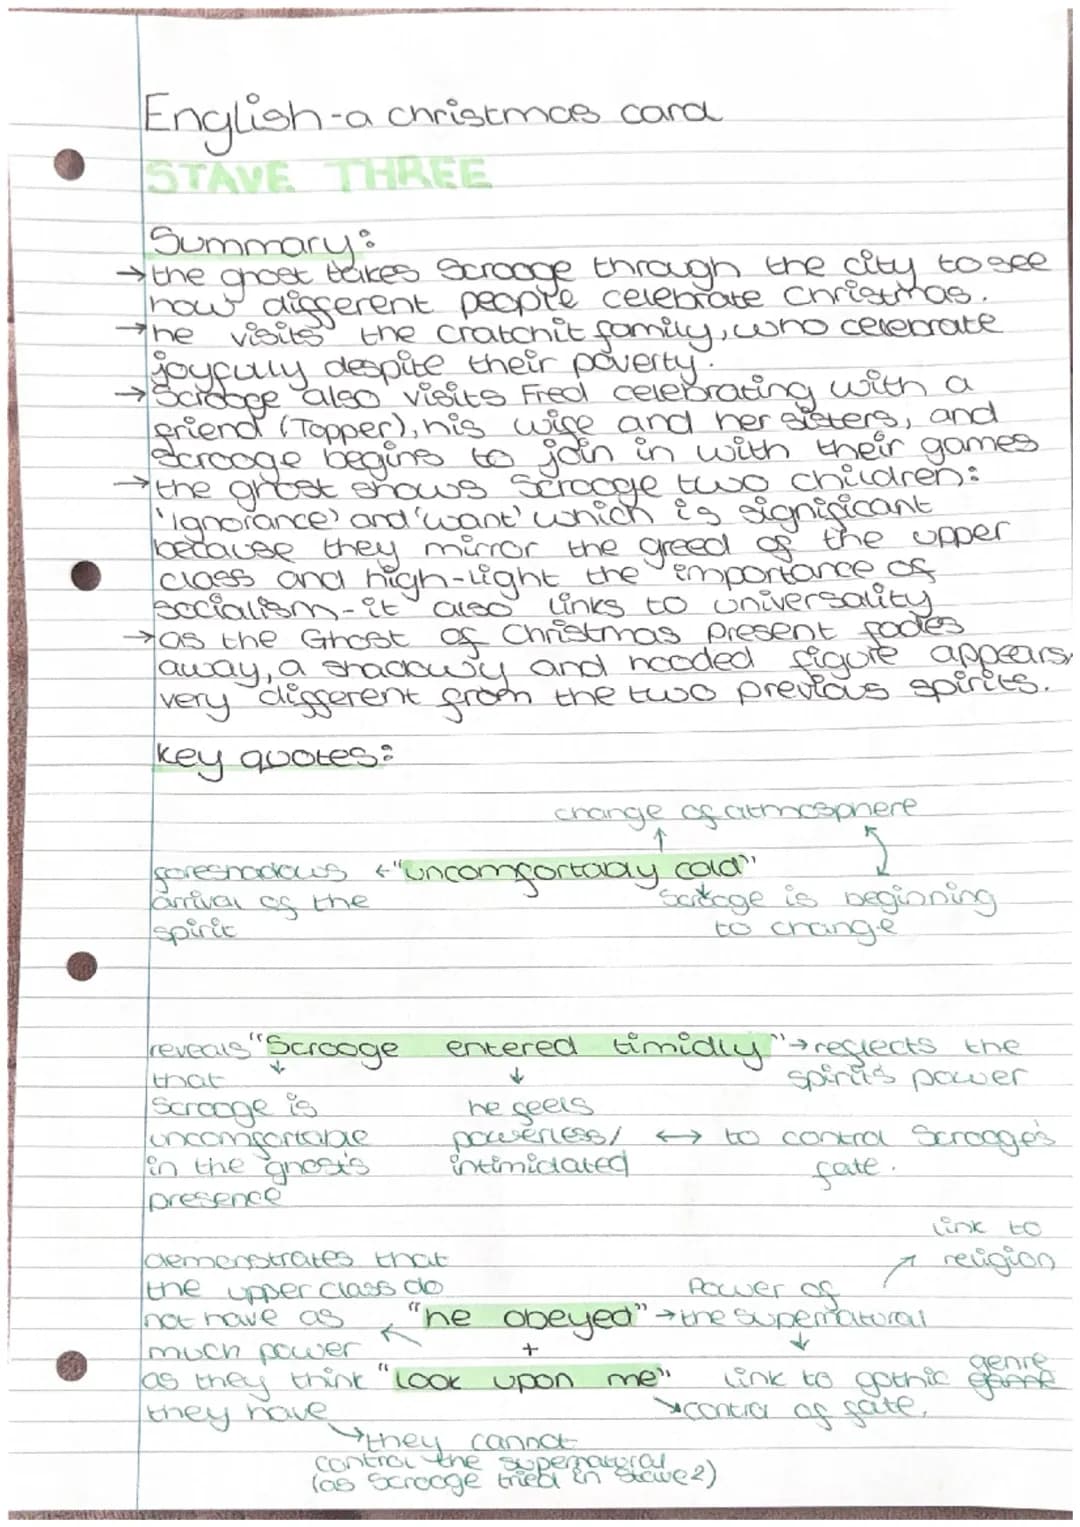 English-a christmas card
STAVE THREE
Summary:
→the ghost takes Scrooge through the city to see
how different people celebrate Christmas.
→he visits the Cratchit family, who celebrate
joyfully despite their poverty.
→Scrooge also visits Fred celebrating with a
friend (Topper), his wife and her sisters, and
Scrooge begins to join in with their games
→the ghost shows Scrooge two children:
'Ignorance' and 'want' which is significant
because they mirror the greed of the upper
class and high-light the importance of
socialism-it also links to universality
→as the Ghost of Christmas Present fades
away, a shadowy and hooded figure appears,
very different from the two previous spirits.
key quotes:
change of atmosphere
foreshadows ←"uncomfortably cold"
arrival of the
spirit
Scrooge is beginning
to change
reveals "Scrooge entered timidly"→reflects the
that
spirit's power
Scrooge is
uncomfortable
in the ghost's
presence
he feels
powerless/ ↔ to control Scrooge's
intimidated
fate.
link to
religion
demonstrates that
the upper class do
not have as
much power
as they think
they have
Power of
"he obeyed" →the supernatural
+
"Look upon me"
link to gothic genre
control of fate.
→they cannot
control the supernatural
(as Scrooge tried in Stave 2)